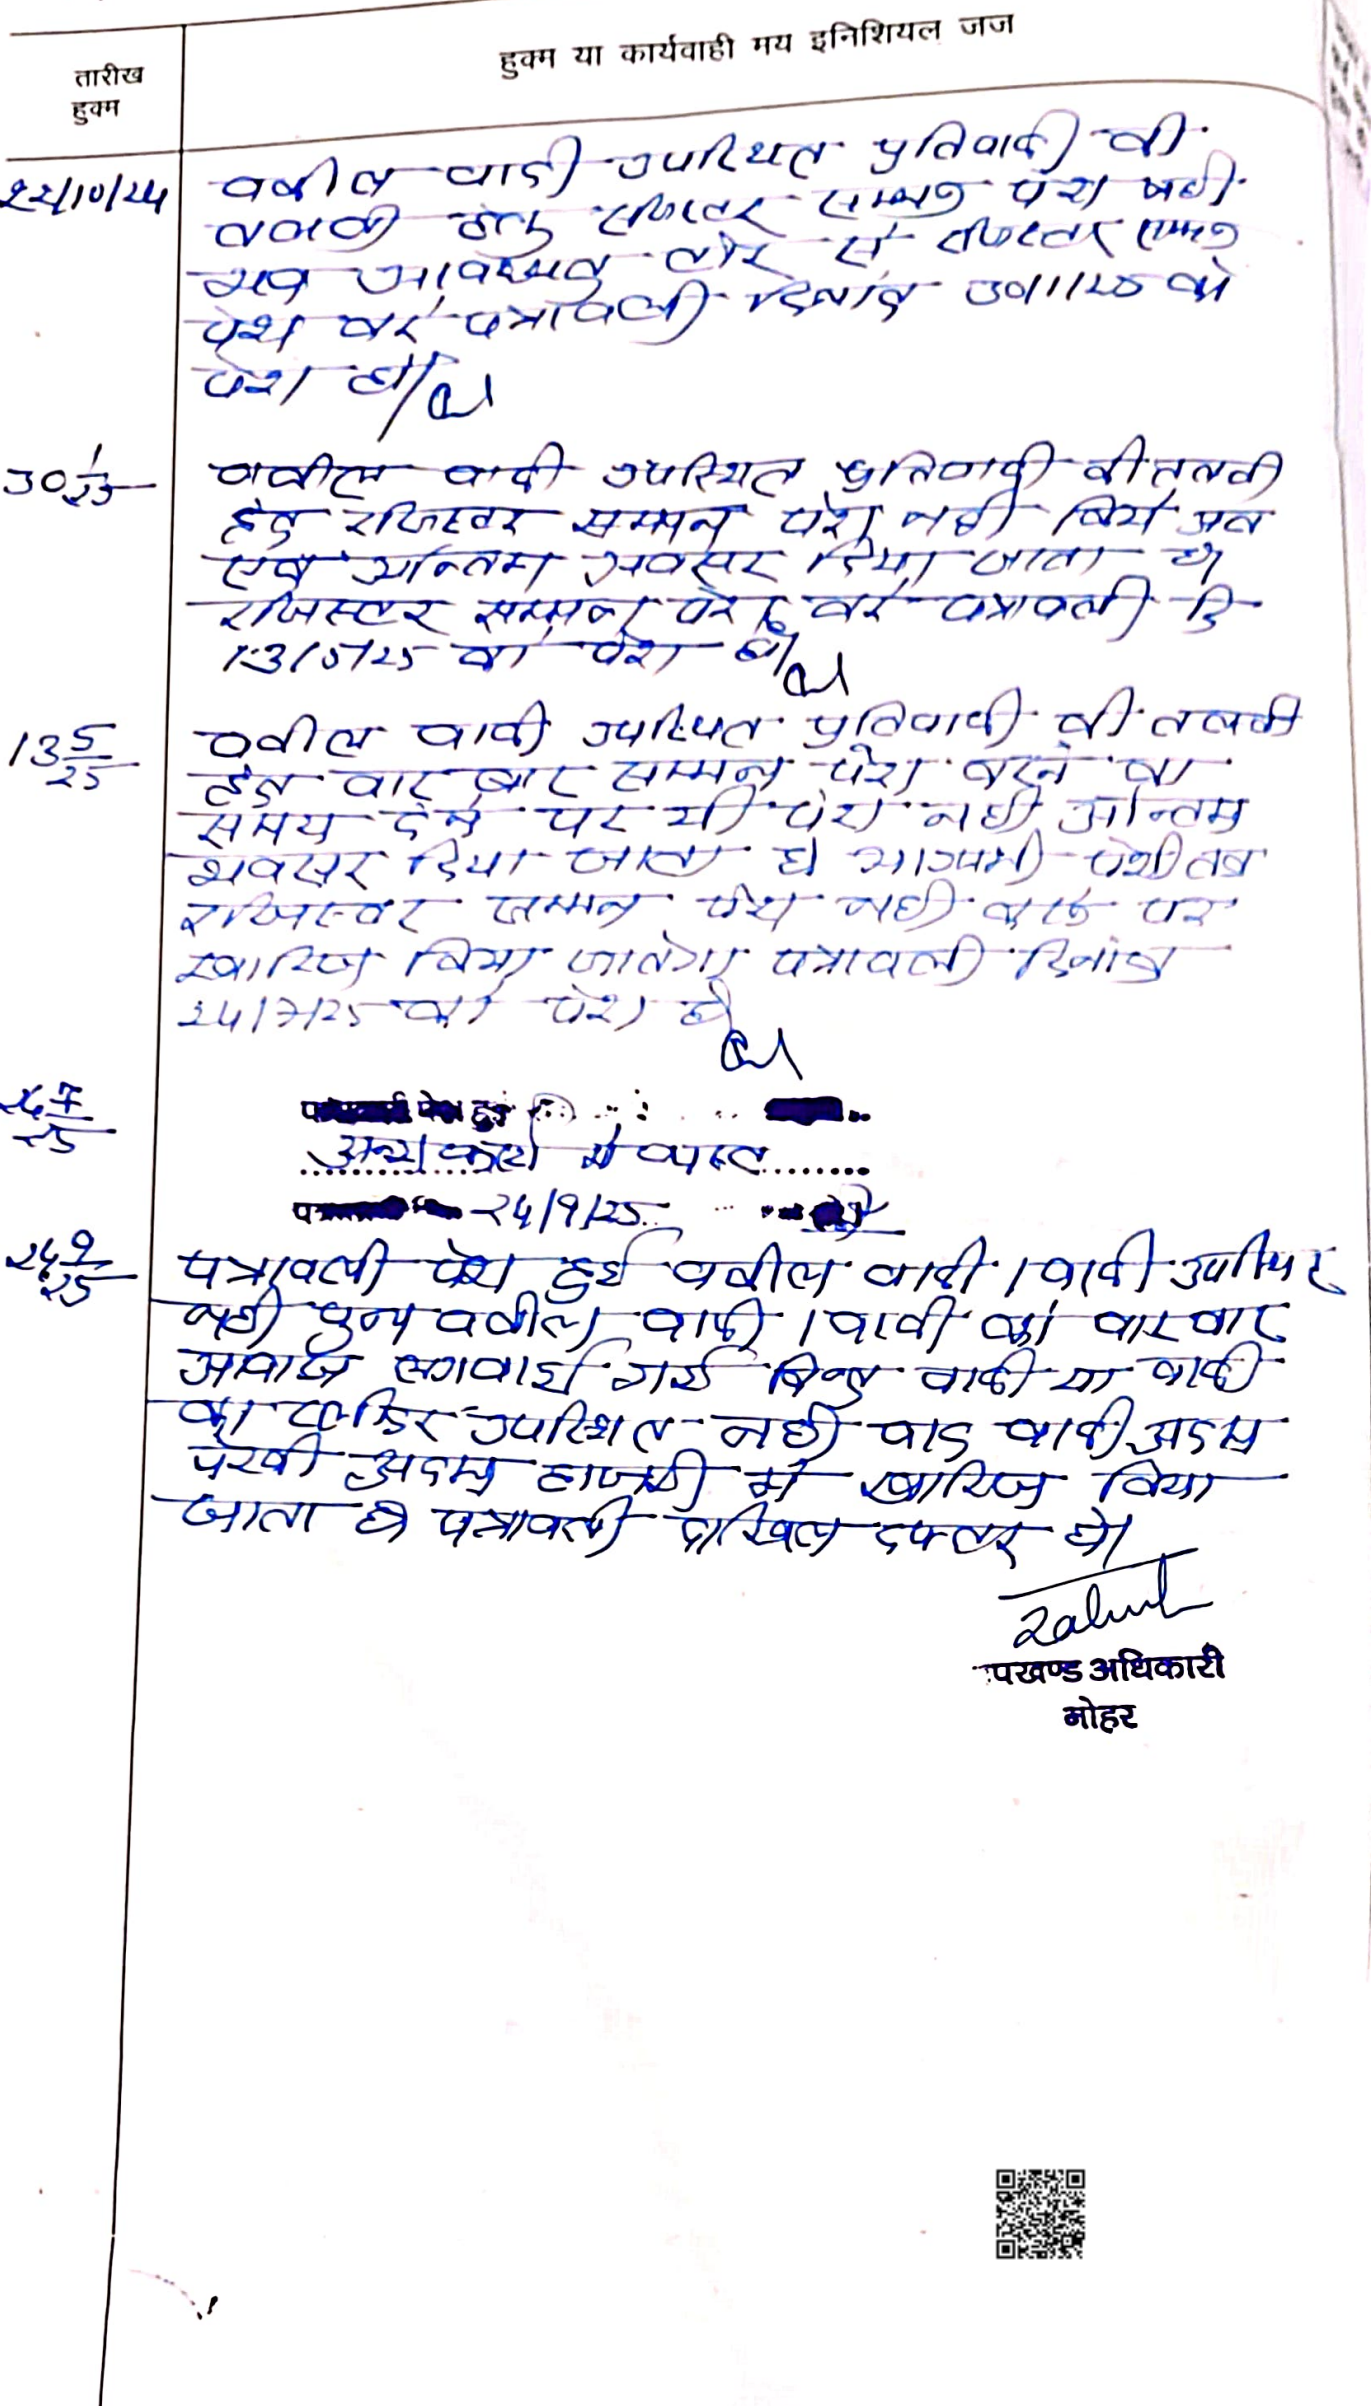 तारीख
हुक्म
हुक्म या कार्यवाही मय इनिशियल जज
22/10/24
वकील वादी उपस्थित प्रतिवादी की
तलबी हेतु रजिस्टर सम्मन पेश नही
आवश्यक तौर से रजिस्टर सम्मन
पेश करे पत्रावली दिनांक 30/1/25 को
पेश हो/
30 1/25
वकील वादी उपस्थित प्रतिवादी की तलबी
हेतु रजिस्टर सम्मन पेश नही किये अत
एक अन्तिम अवसर दिया जाता है
रजिस्टर सम्मन पेश करे पत्रावली दि
13/5/25 को पेश हो/
13 5/25
वकील वादी उपस्थित प्रतिवादी की तलबी
हेतु बार बार सम्मन पेश करने का
समय देने पर भी पेश नही अन्तिम
अवसर दिया जाता है आगामी पेशी तक
रजिस्टर सम्मन पेश नही करने पर
खारिज किया जावेगा पत्रावली दिनांक
24/7/25 को पेश हो
24 7/25
अन्य कार्यो मे व्यस्त
24/9/25
24 9/25
पत्रावली पेश हुई वकील वादी / वादी उपस्थित
नही पुन्य वकील वादी / वादी को बार बार
आवाज लगवाई गई किन्तु वादी या वादी
का उपस्थित नही वाद वादी अदम
पैरवी अदम हाजरी में खारिज किया
जाता है पत्रावली दाखिल दफ्तर हो/
पखण्ड अधिकारी
मोहर